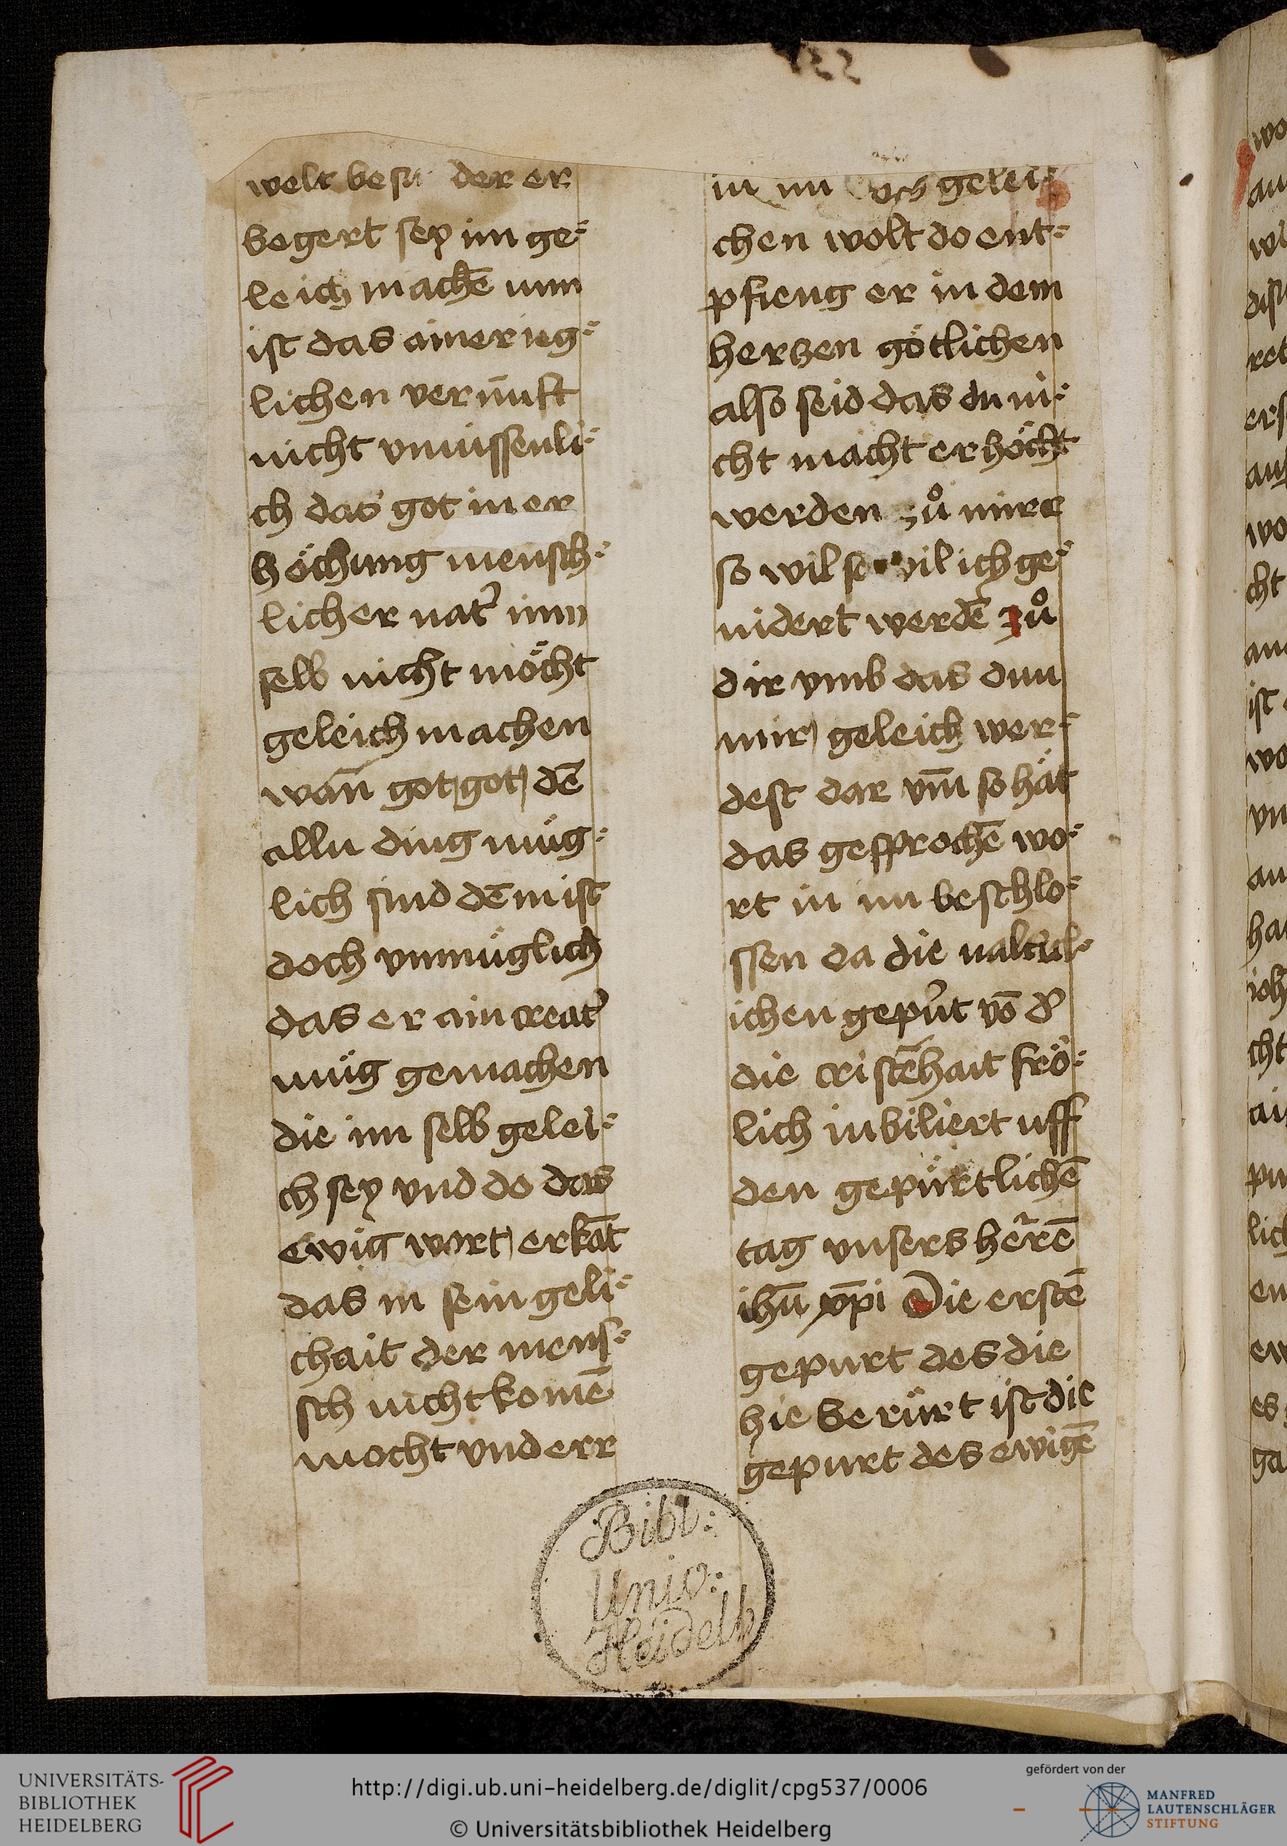 welt der er
begert sey im ge⸗
leich machē nun
ist das ainer ieg⸗
lichen vernūft
nicht vnwissenli⸗
ch das got in er
höchung mensch⸗
licher nat᷑ imm
selb nicht möcht
geleich machen
wan̄ got got dē
allu ding müg⸗
lich sind dēm ist
doch vnmüglich
das er ain creat᷑
müg gemachen
die im selb gelei⸗
ch sey vnd do das
ewig wort erkāt
das in sein geli⸗
chait der mens⸗
sch nicht komē
mocht vnd err
im gelei⸗
chen wolt do ent⸗
pfieng er in dem
herzen götlichen
also seid das du ni⸗
cht macht erhöcht
werden zů mire
so wil so vil ich ge⸗
nidert werdē zů
dir vmb das dun
mir geleich wer⸗
dest dar vm̄ so hät
das gesprochē wo⸗
rt in im beschlo⸗
ssen da die
ichen gepu᷑t vō d᷑
die cristēhait frö⸗
lich iubiliert uff
den gepürtlichē
tag vnsers her᷑ē
ihū xp̄i Die erstē
gepurt des die
hie berürt ist die
gepurt des ewigē
Bibl:
Univ:
Heidelb
UNIVERSITÄTS-
BIBLIOTHEK
HEIDELBERG
http://digi.ub.uni-heidelberg.de/diglit/cpg537/0006
© Universitätsbibliothek Heidelberg
gefördert von der
MANFRED
LAUTENSCHLÄGER
STIFTUNG